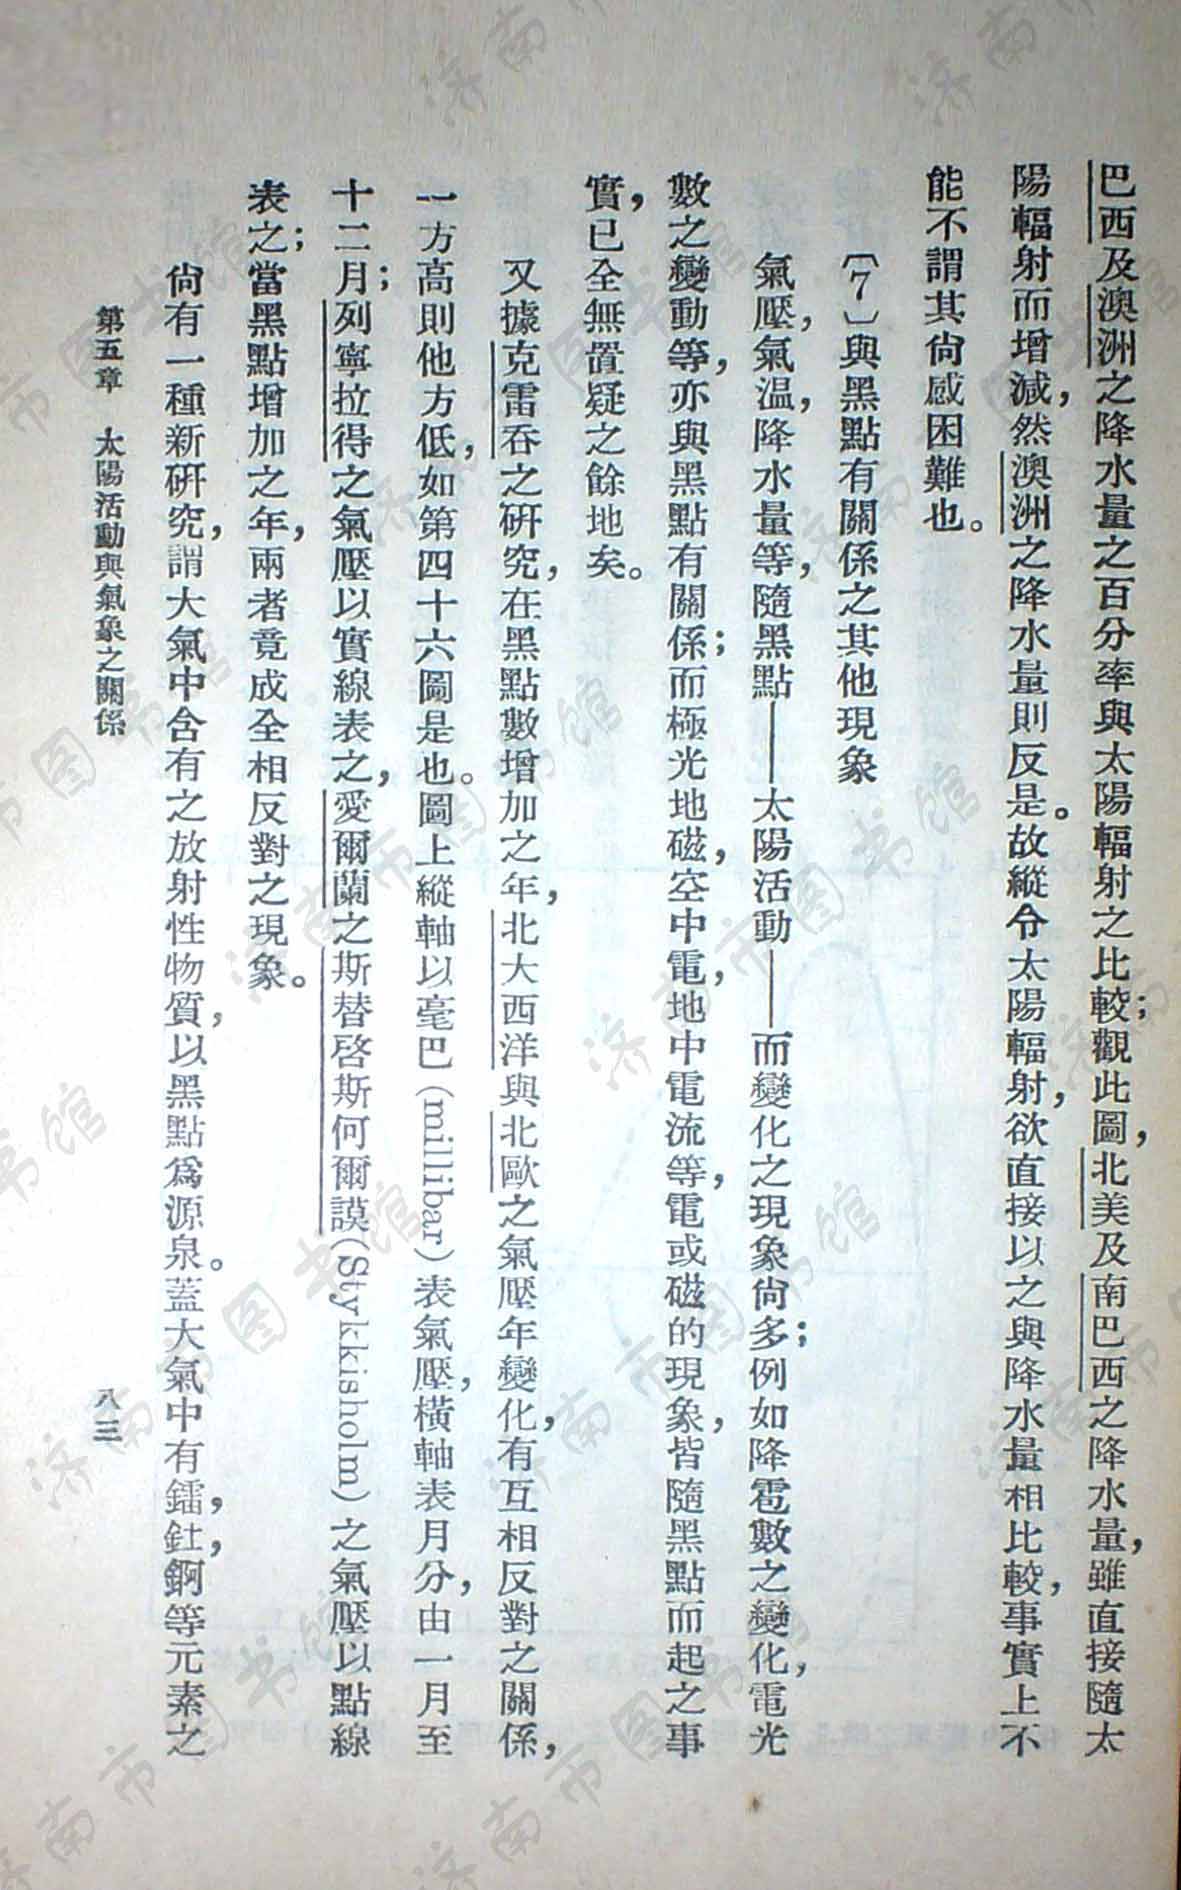 巴西及澳洲之降水量之百分率與太陽輻射之比較；觀此圖，北美及南巴西之降水量，雖直接隨太
陽輻射而增減，然澳洲之降水量則反是。故縱令太陽輻射，欲直接以之與降水量相比較，事實上不
能不謂其尙感困難也。
〔7〕與黑點有關係之其他現象
氣壓，氣溫，降水量等，隨黑點——太陽活動——而變化之現象尙多；例如降雹數之變化，電光
數之變動等，亦與黑點有關係；而極光地磁，空中電，地中電流等，電或磁的現象，皆隨黑點而起之事
實，已全無置疑之餘地矣。
又據克雷吞之硏究，在黑點數增加之年，北大西洋與北歐之氣壓年變化，有互相反對之關係，
一方高則他方低，如第四十六圖是也。圖上縱軸以毫巴(millibar)表氣壓，橫軸表月分，由一月至
十二月；列寧拉得之氣壓以實線表之，愛爾蘭之斯替啓斯何爾謨(Stykkisholm)之氣壓以點線
表之；當黑點增加之年，兩者竟成全相反對之現象。
尙有一種新硏究，謂大氣中含有之放射性物質，以黑點爲源泉。蓋大氣中有鐳，釷，錒等元素之
第五章　太陽活動與氣象之關係
八三
济南市图书馆